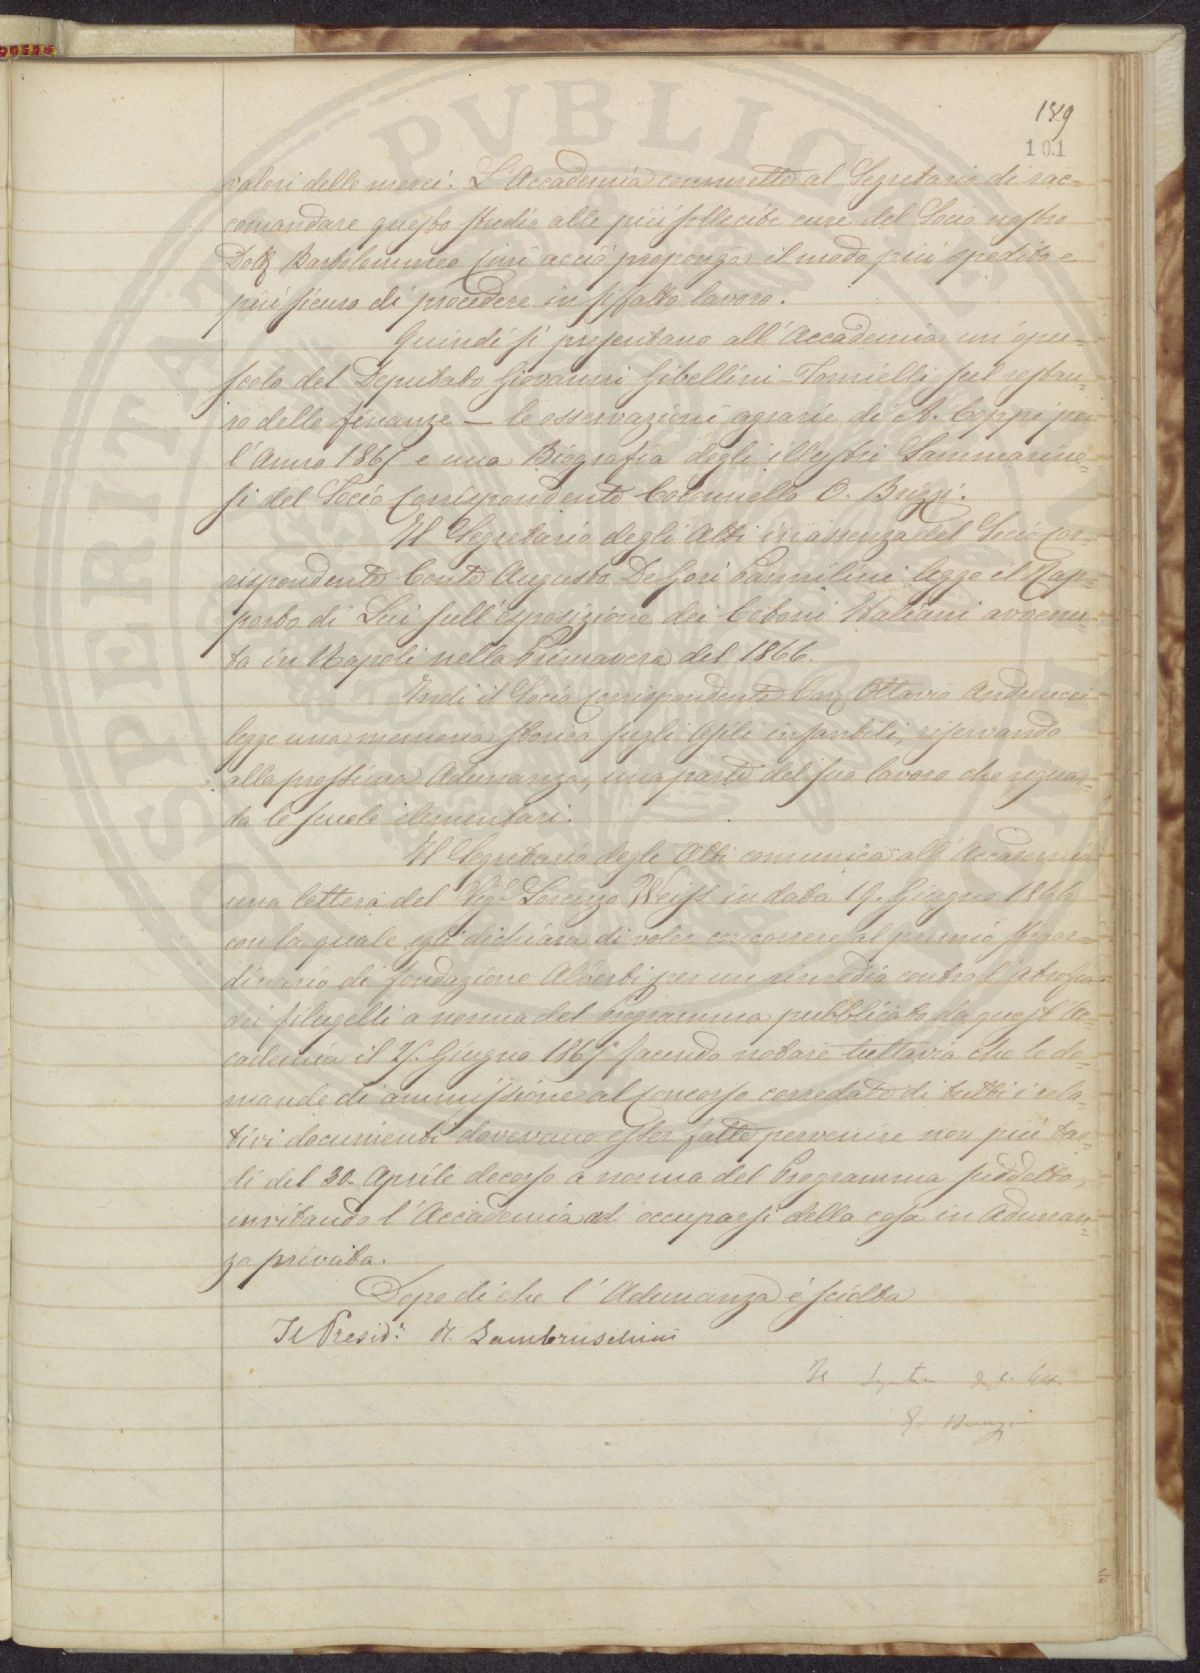 189
101
valori delle merci. L'Accademia commette al Segretario di rac=
comandare questo studio alle più sollecite cure del Socio nostro
Dott Bartolommeo Cini acciò proponga il modo più spedito e
più sicuro di procedere in sifatto lavoro.
Quindi si presentano all'Accademia un opu=
scolo del Deputato Giovanni Gibellini-Tornielli sul restau=
ro delle finanze — le osservazioni agrarie di A. Coppi per
l'Anno 1865 e una Biografia degli illustri Sammarine=
si del Socio Corrispondente Colonnello O. Brizzi.
Il Segretario degli Atti in assenza del Socio Cor=
rispondente Conte Augusto De Gori Pannilini legge il Rap=
porto di Lui sull'esposizione dei Cotoni Italiani avvenu=
ta in Napoli nella Primavera del 1866.
Indi il Socio Corrispondente Cav Ottavio Andreucci
legge una memoria storica sugli Asili infantili, riservando
alla prossima Adunanza, una parte del suo lavoro che riguar=
da le scuole elementari.
Il Segretario degli Atti comunica all'Accademia
una lettera del Sigr Lorenzo Weiss in data 19. Giugno 1866
con la quale egli dichiara di voler concorrere al premio straor=
dinario di fondazione Alberti per un rimedio contro l'atrofia
dei filugelli a norma del Programma pubblicato da quest'Ac
cademia il 25. Giugno 1865 facendo notare tuttavia che le do=
mande di ammissione al Concorso corredate di tutti i rela=
tivi documenti dovevano esser fatte pervenire non più tar=
di del 30 Aprile decorso a norma del Programma suddetto,
invitando l'Accademia ad occuparsi della cosa in Adunan=
za privata.
Dopo di che l'Adunanza è sciolta
Il Presid.e R. Lambruschini
Il Segretario degl. Att.